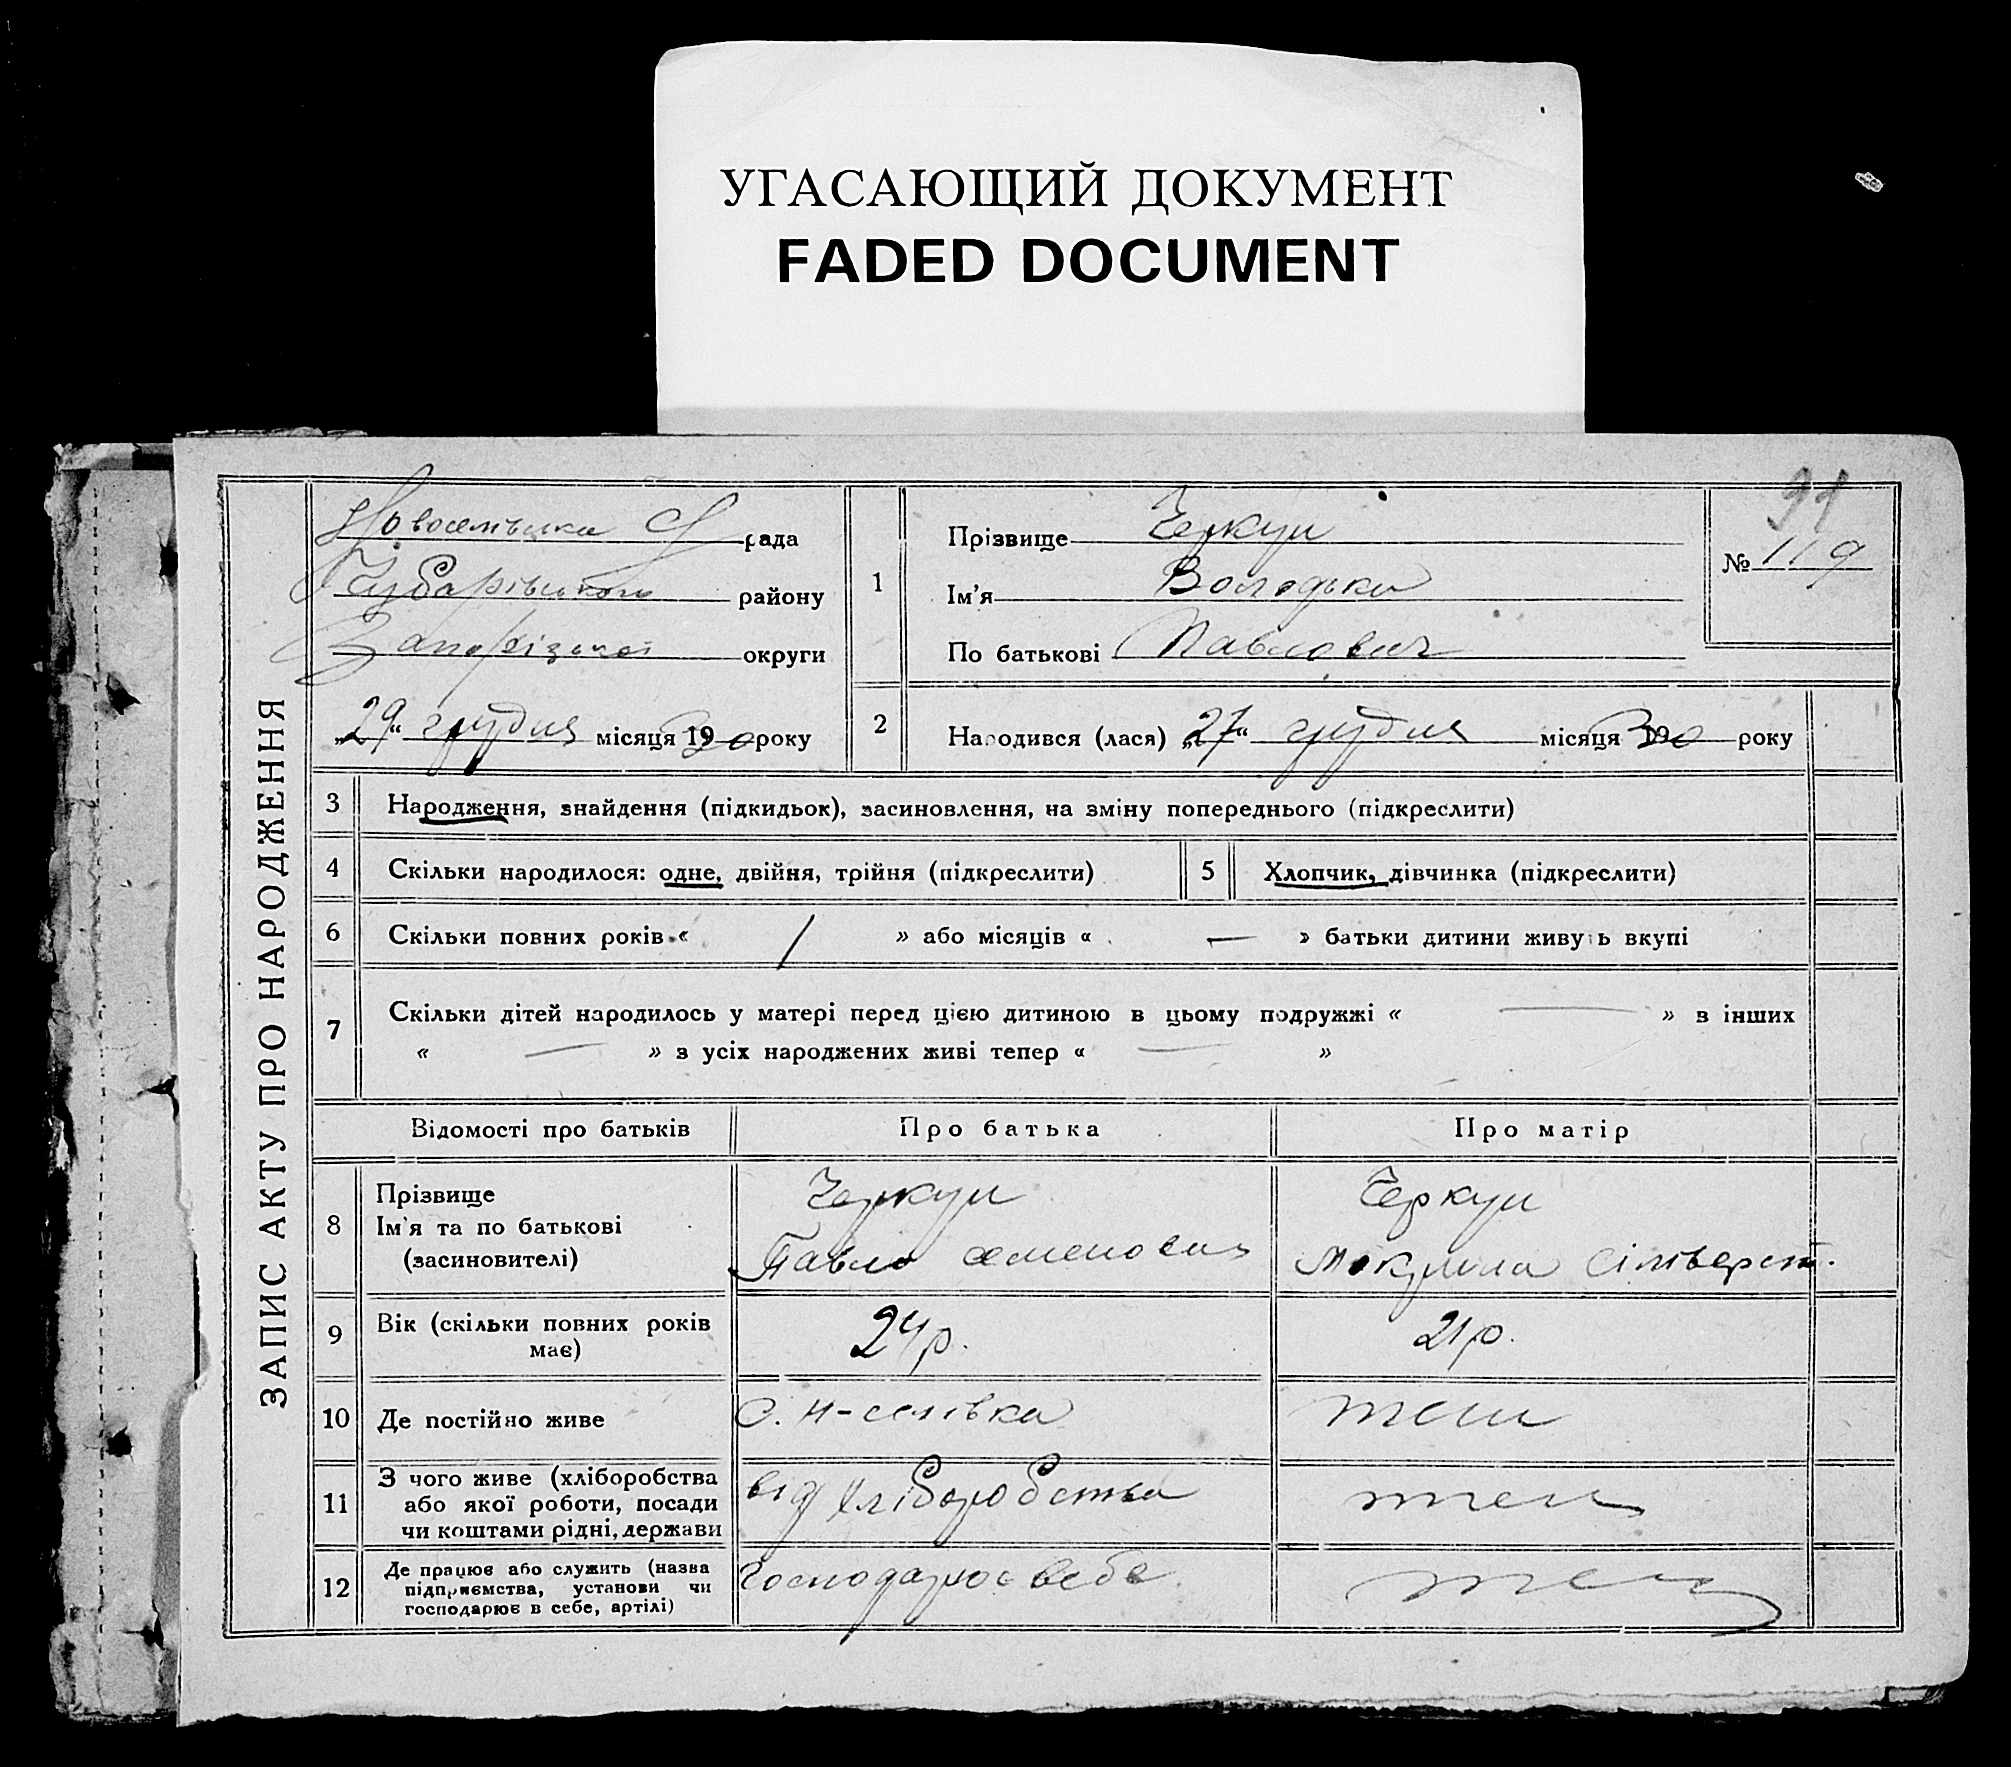 УГАСАЮЩИЙ ДОКУМЕНТ
FADED DOCUMENT
ЗАПИС АКТУ ПРО НАРОДЖЕННЯ
91
№ 119
рада
Чубарівського району
Запорізької округи
„29“ грудня місяця 1930 року
1
Прізвище Черкун
Ім'я Володька
По батькові Павлович
2
Народився (лася) „27“ грудня місяця 1930 року
3 Народження, знайдення (підкидьок), засиновлення, на зміну попереднього (підкреслити)
4 Скільки народилося: одне, двійня, трійня (підкреслити)
5 Хлопчик, дівчинка (підкреслити)
6 Скільки повних років « 1 » або місяців « — » батьки дитини живуть вкупі
7 Скільки дітей народилось у матері перед цією дитиною в цьому подружжі « — » в інших
« — » з усіх народжених живі тепер « — »
Відомості про батьків Про батька Про матір
8 Прізвище
Ім'я та по батькові
(засиновителі)
Черкун
Павло
Черкун
Сілівверст.
9 Вік (скільки повних років
має)
24р.
21р.
10 Де постійно живе
с. Н-селівка
теш
11 З чого живе (хліборобства
або якої роботи, посади
чи коштами рідні, держави
від хліборобства
теш
12 Де працює або служить (назва
підприємства, установи чи
господарює в себе, артілі)
Господарює в себе
теш